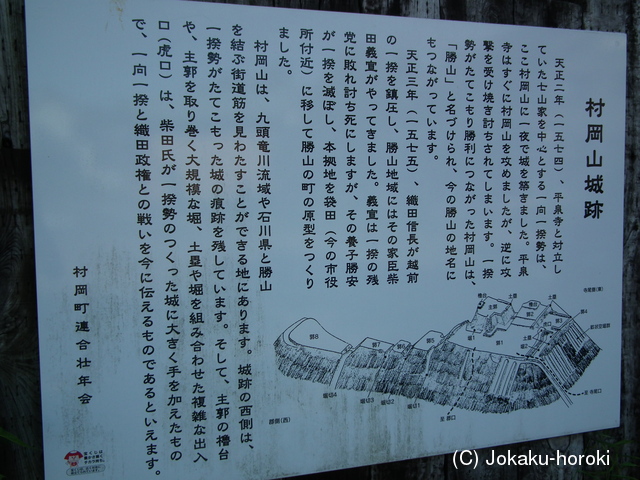 村岡山城跡
天正二年（一五七四）、平泉寺と対立し
ていた七山家を中心とする一向一揆勢は、
ここ村岡山に一夜で城を築きました。平泉
寺はすぐに村岡山を攻めましたが、逆に攻
撃を受け焼き討ちされてしまいます。一揆
勢がたてこもり勝利につながった村岡山は、
「勝山」と名づけられ、今の勝山の地名に
もつながっています。
天正三年（一五七五）、織田信長が越前
の一揆を鎮圧し、勝山地域にはその家臣柴
田義宣がやってきました。義宣は一揆の残
党に敗れ討ち死にしますが、その養子勝安
が一揆を滅ぼし、本拠地を袋田（今の市役
所付近）に移して勝山の町の原型をつくり
ました。
村岡山は、九頭竜川流域や石川県と勝山
を結ぶ街道筋を見わたすことができる地にあります。城跡の西側は、
一揆勢がたてこもった城の痕跡を残しています。そして、主郭の櫓台
や、主郭を取り巻く大規模な堀、土塁や堀を組み合わせた複雑な出入
口（虎口）は、柴田氏が一揆勢のつくった城に大きく手を加えたもの
で、一向一揆と織田政権との戦いを今に伝えるものであるといえます。
村岡町連合壮年会
櫓台
土塁
主郭
土塁
郭4
堀1
郭1
土塁
郭5
郭7
郭8
堀切4
堀切3
堀切2
堀切1
(C) Jokaku-horoki